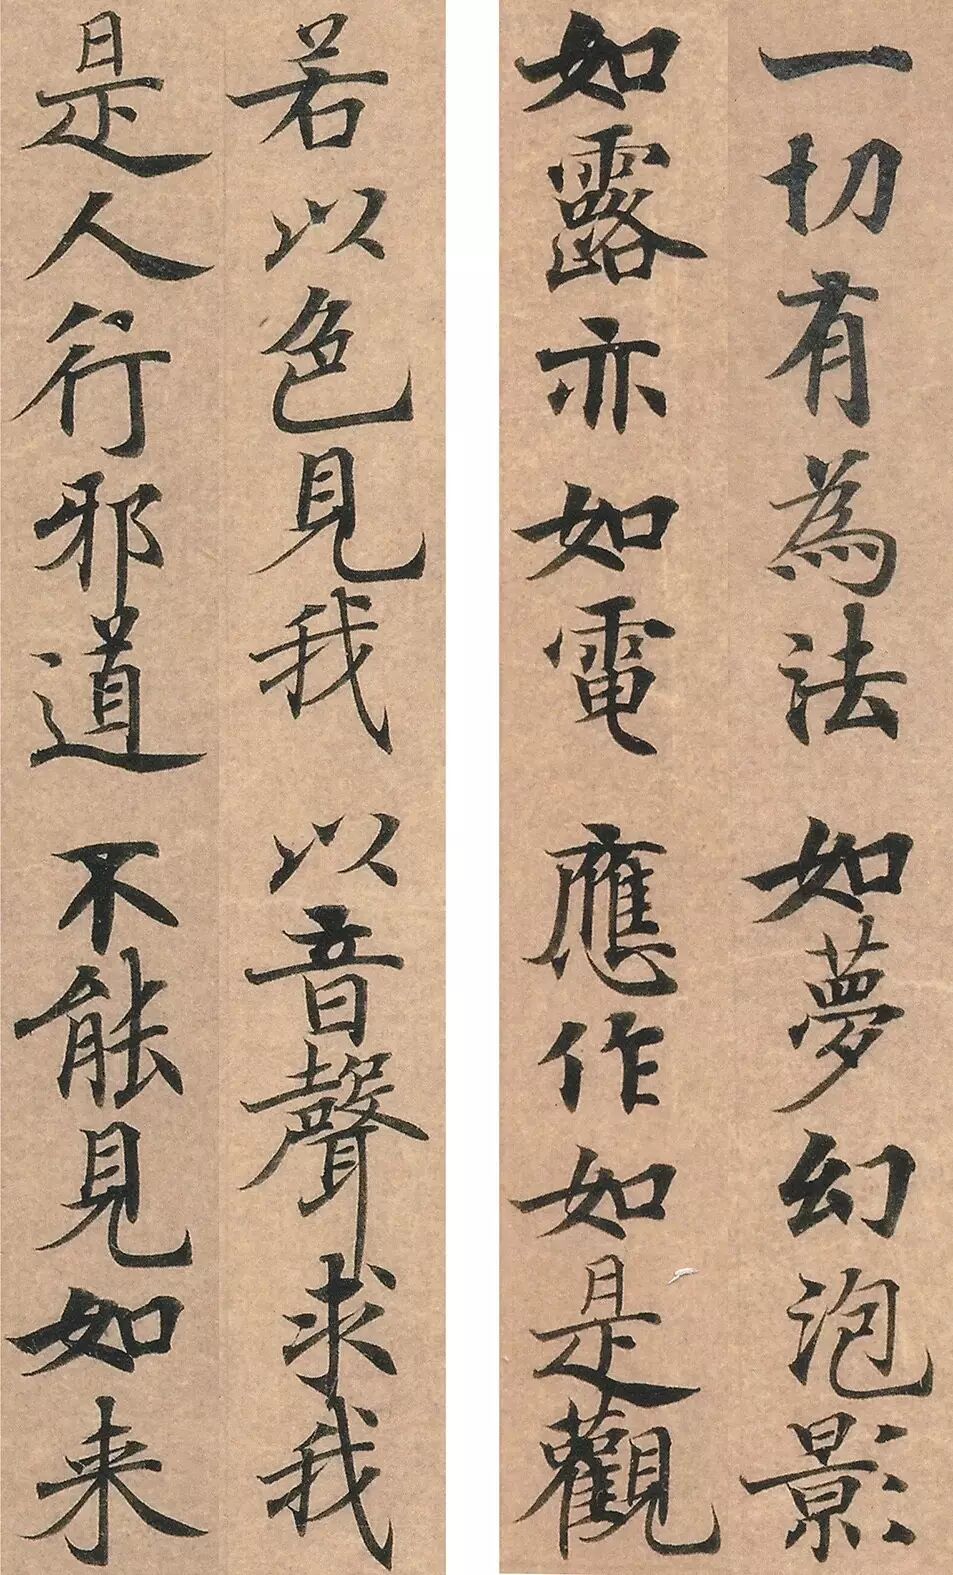 一切有為法如夢幻泡影
如露亦如電應作如是觀
若以色見我以音聲求我
是人行邪道不能見如来